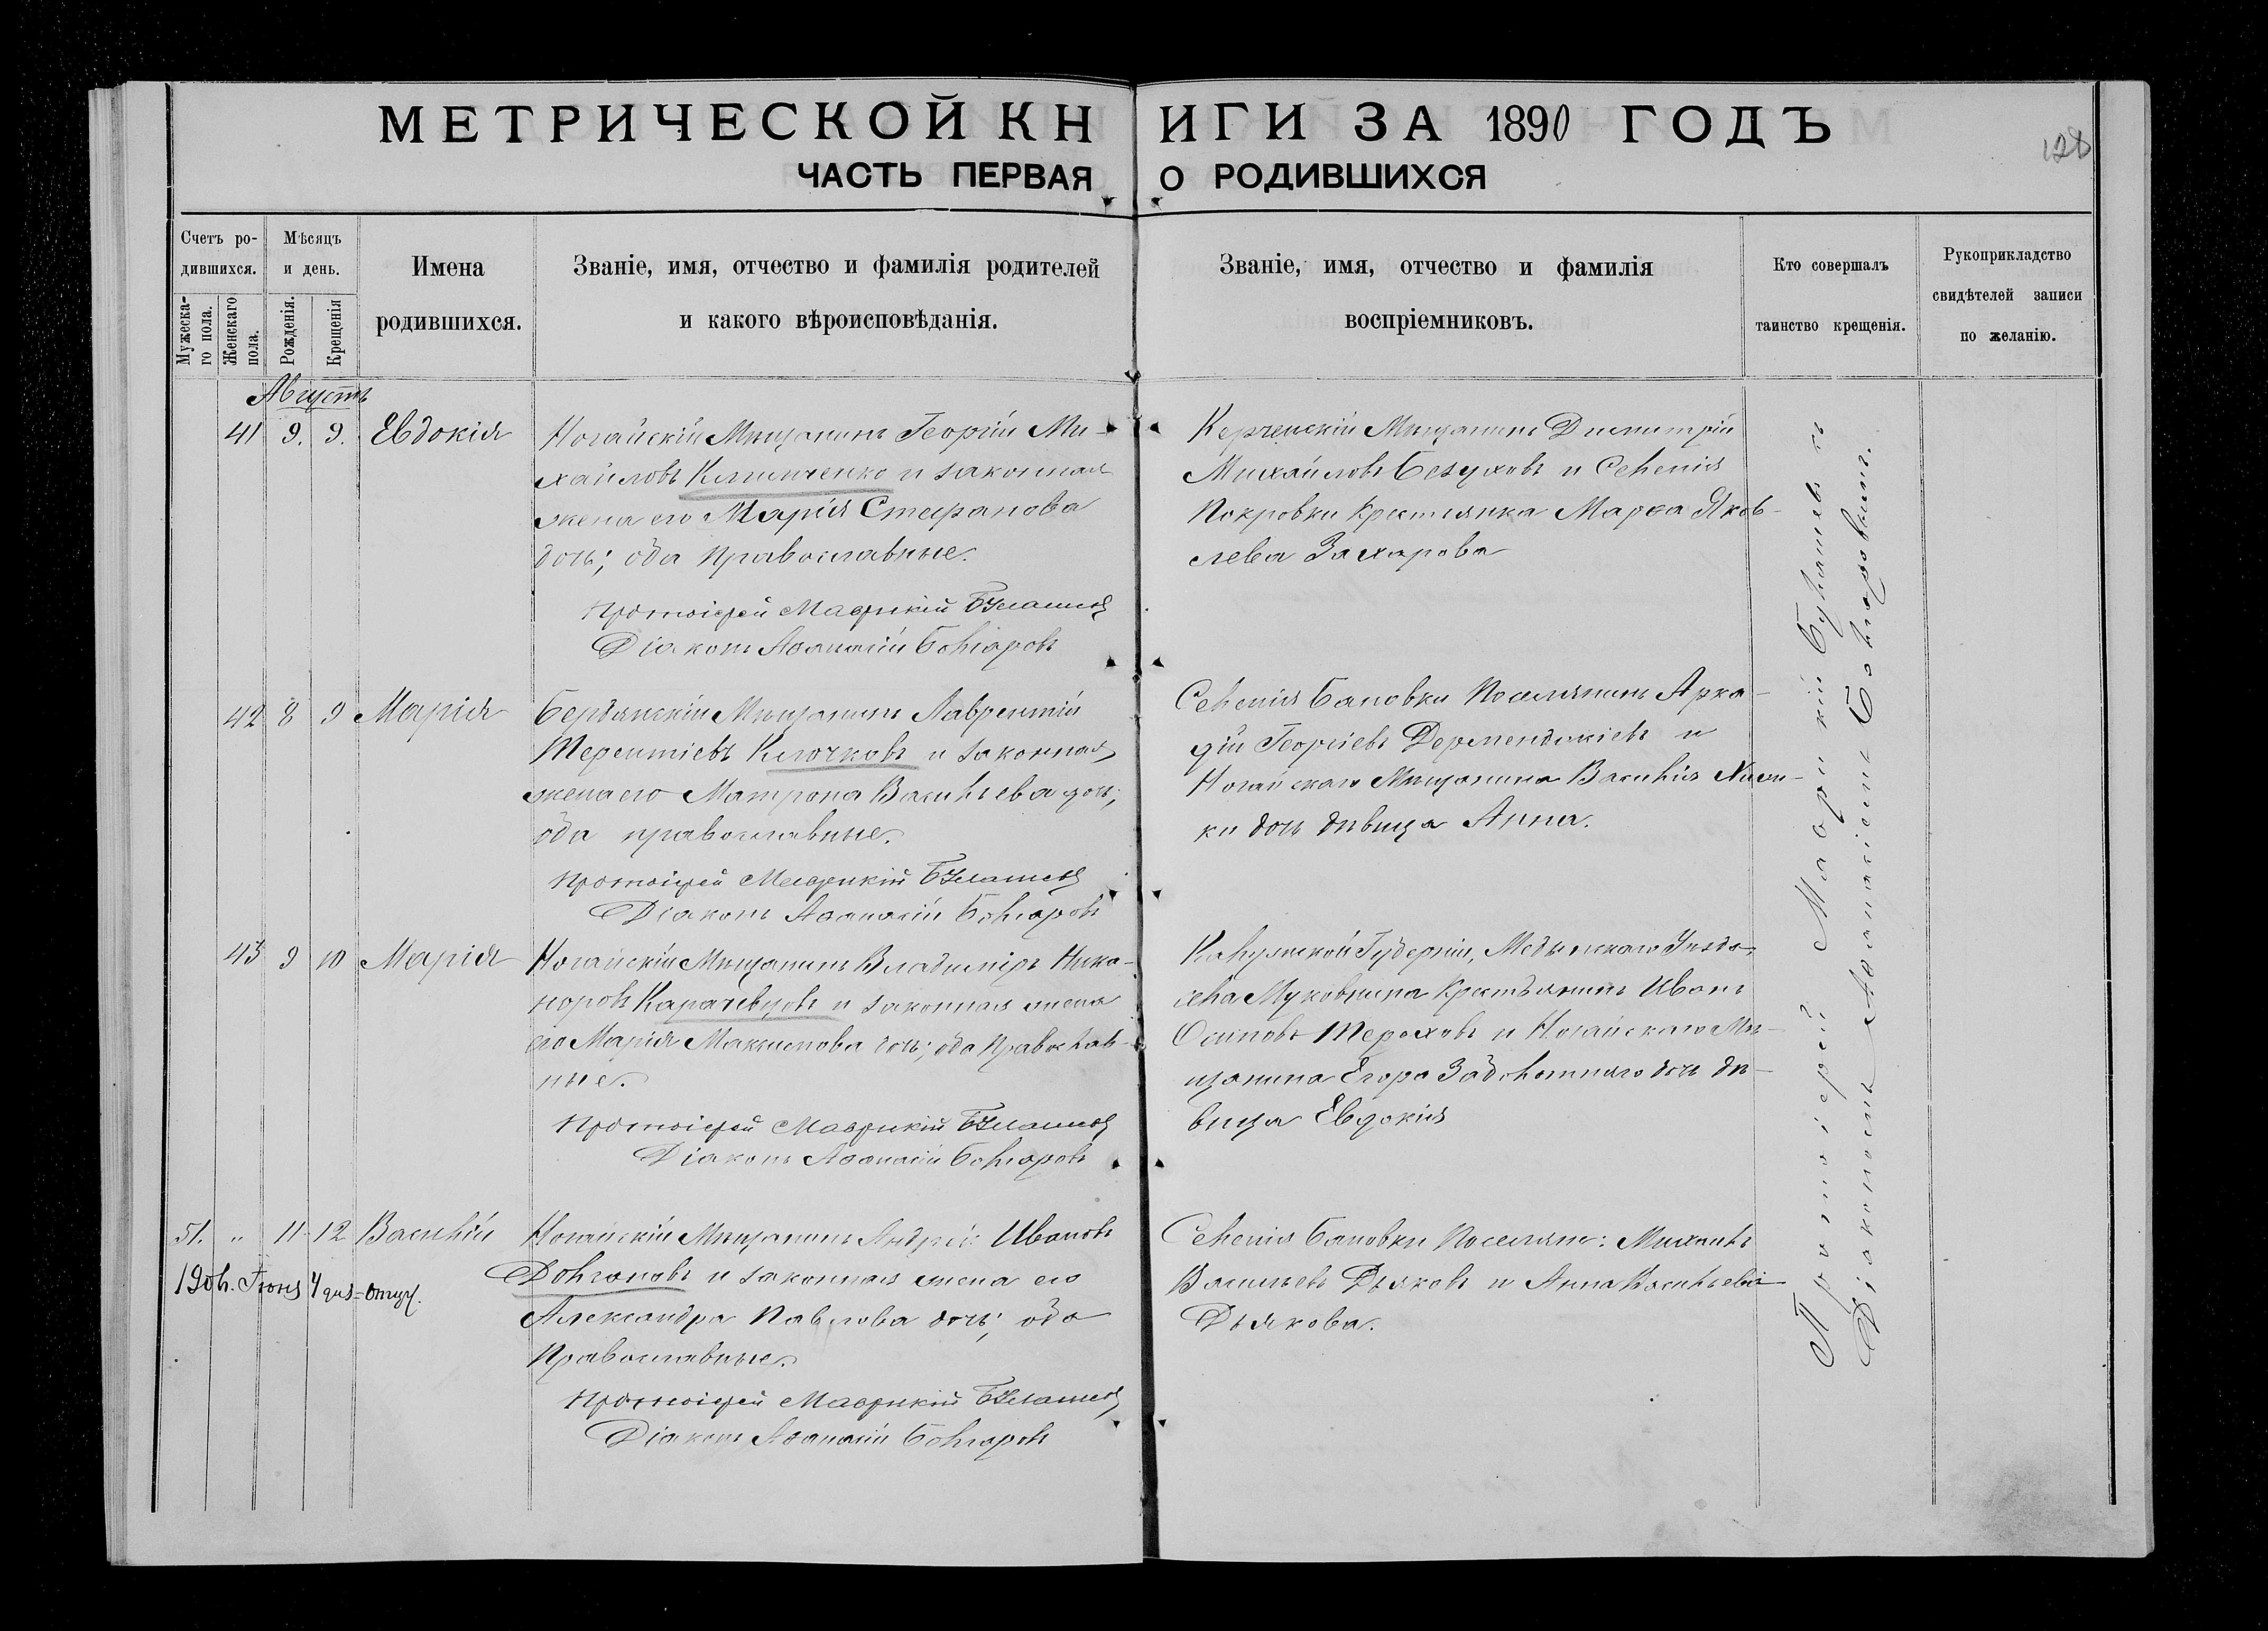 МЕТРИЧЕСКОЙ КНИГИ ЗА 1890 ГОДЪ
128
ЧАСТЬ ПЕРВАЯ О РОДИВШИХСЯ
Счетъ ро-
дившихся.
Мужеска-
го пола.
Женскаго
пола.
Мѣсяцъ
и день.
Рожденія.
Крещенія
Имена
родившихся.
Званіе, имя, отчество и фамилія родителей
и какого вѣроисповѣданія.
Званіе, имя, отчество и фамилія
воспріемниковъ.
Кто совершалъ
таинство крещенія.
Рукоприкладство
свидѣтелей записи
по желанію.
Августъ
41 9. 9. Евдокія
Ногайскій Мѣщанинъ Георгій Ми-
хайловъ Климченко и законная
жена его Марія Стефанова
дочь; оба православные.
Протоіерей Маврикій
Діаконъ Аѳанасій Бонгаровъ
Керченскій Мѣщанинъ Димитрій
Михайловъ Безуховъ и Селенія
Покровки Крестьянка Марѳа Яков-
лева Захарова
42 8 9 Марія
Бердянскій Мѣщанинъ Лаврентій
Терентіевъ Клочковъ и законная
жена его Матрона Васильева дочь;
оба православные.
Протоіерей Маврикій
Діаконъ Аѳанасій Бонгаровъ
Селенія Бановки Поселянинъ Арка-
дій Георгіевъ Дермендожіевъ и
Ногайскаго Мѣщанина Василія
ки дочь дѣвица Анна.
43 9 10 Марія
Ногайскій Мѣщанинъ Владиміръ Ника-
норовъ Карачевцовъ и законная жена
его Марія Максимова дочь; оба Православ-
ные.
Протоіерей Маврикій
Діаконъ Аѳанасій Бонгаровъ
Калужской Губерніи, Медынскаго Уѣзда,
села Муковнина Крестьянинъ Иванъ
Осиповъ Тереховъ и Ногайскаго Мѣ-
щанина Егора Задохотняго дочь дѣ-
вица Евдокія
51. " 11 12 Василій
190 г. Іюня 4 дня
Ногайскій Мѣщанинъ Андрей Ивановъ
Долгановъ и законная жена его
Александра Павлова дочь; оба
Православные.
Протоіерей Маврикій
Діаконъ Аѳанасій Бонгаровъ
Селенія Бановки Поселяне: Михаилъ
Васильевъ Дьяковъ и Анна Васильева
Дьякова.
Протоіерей Маврикій
Діакономъ Аѳанасіемъ